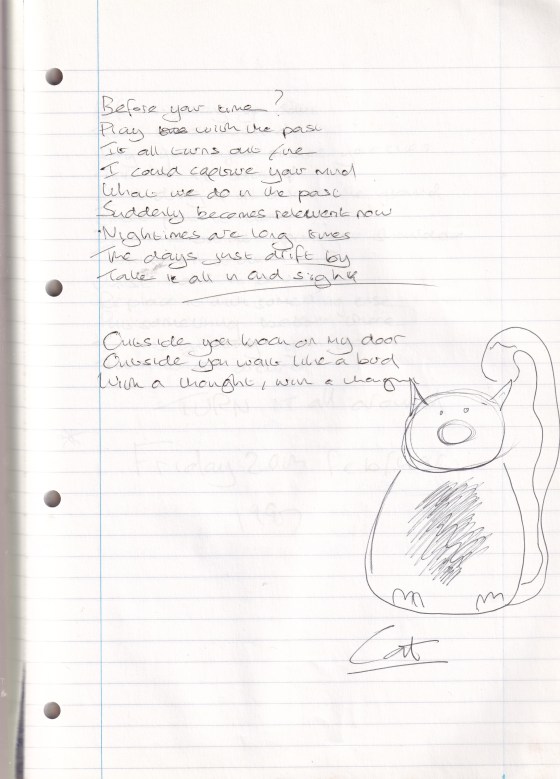 Before your time?
Play with the past
It all turns out fine
I could capture your mind
What we do in the past
Suddenly becomes relevent now
Nightimes are long times
The days just drift by
Take it all in and sigh
Outside you knock on my door
Outside you wait like a bird
With a thought, with a
Cat